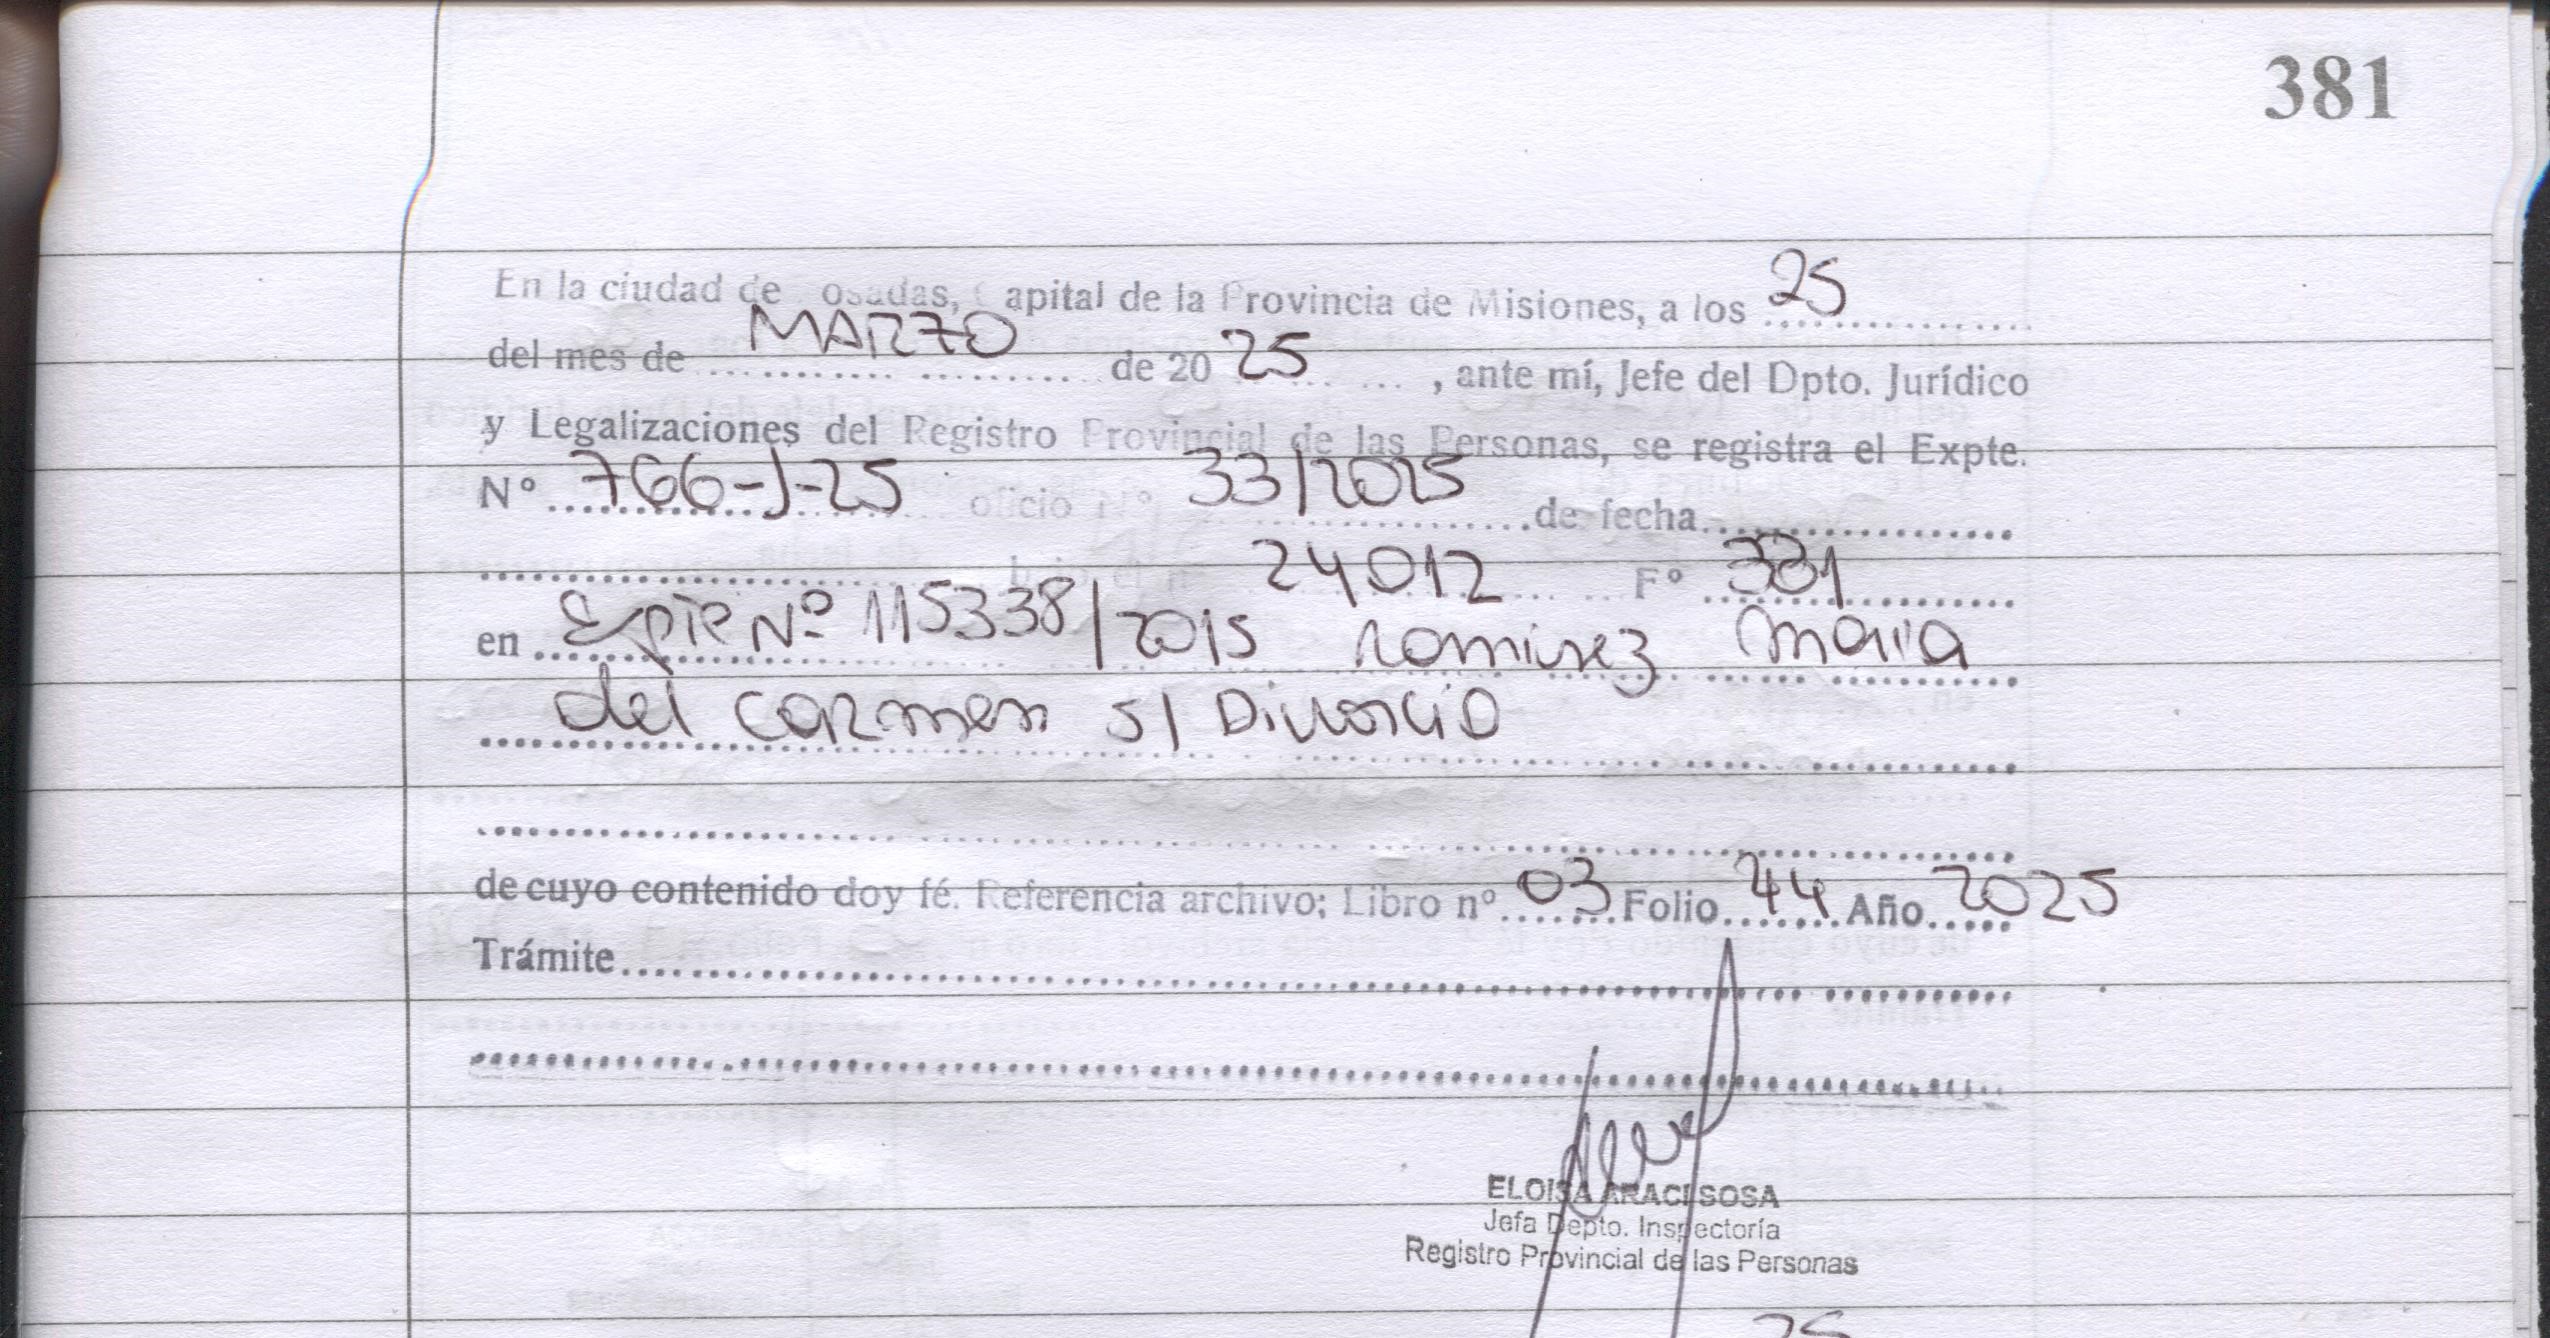 381
En la ciudad de Posadas, Capital de la Provincia de Misiones, a los 25
del mes de MARZO de 20 25, ante mí, Jefe del Dpto. Jurídico
y Legalizaciones del Registro Provincial de las Personas, se registra el Expte.
Nº 766-J-25 oficio Nº 33/2025 de fecha
24012 Fº 381
en Expte Nº 115338/2015 Ramirez Maria
del Carmen s/ Divorcio
de cuyo contenido doy fé. Referencia archivo; Libro nº 03 Folio 44 Año 2025
Trámite
ELOISA ARACI SOSA
Jefa Depto. Inspectoría
Registro Provincial de las Personas
25